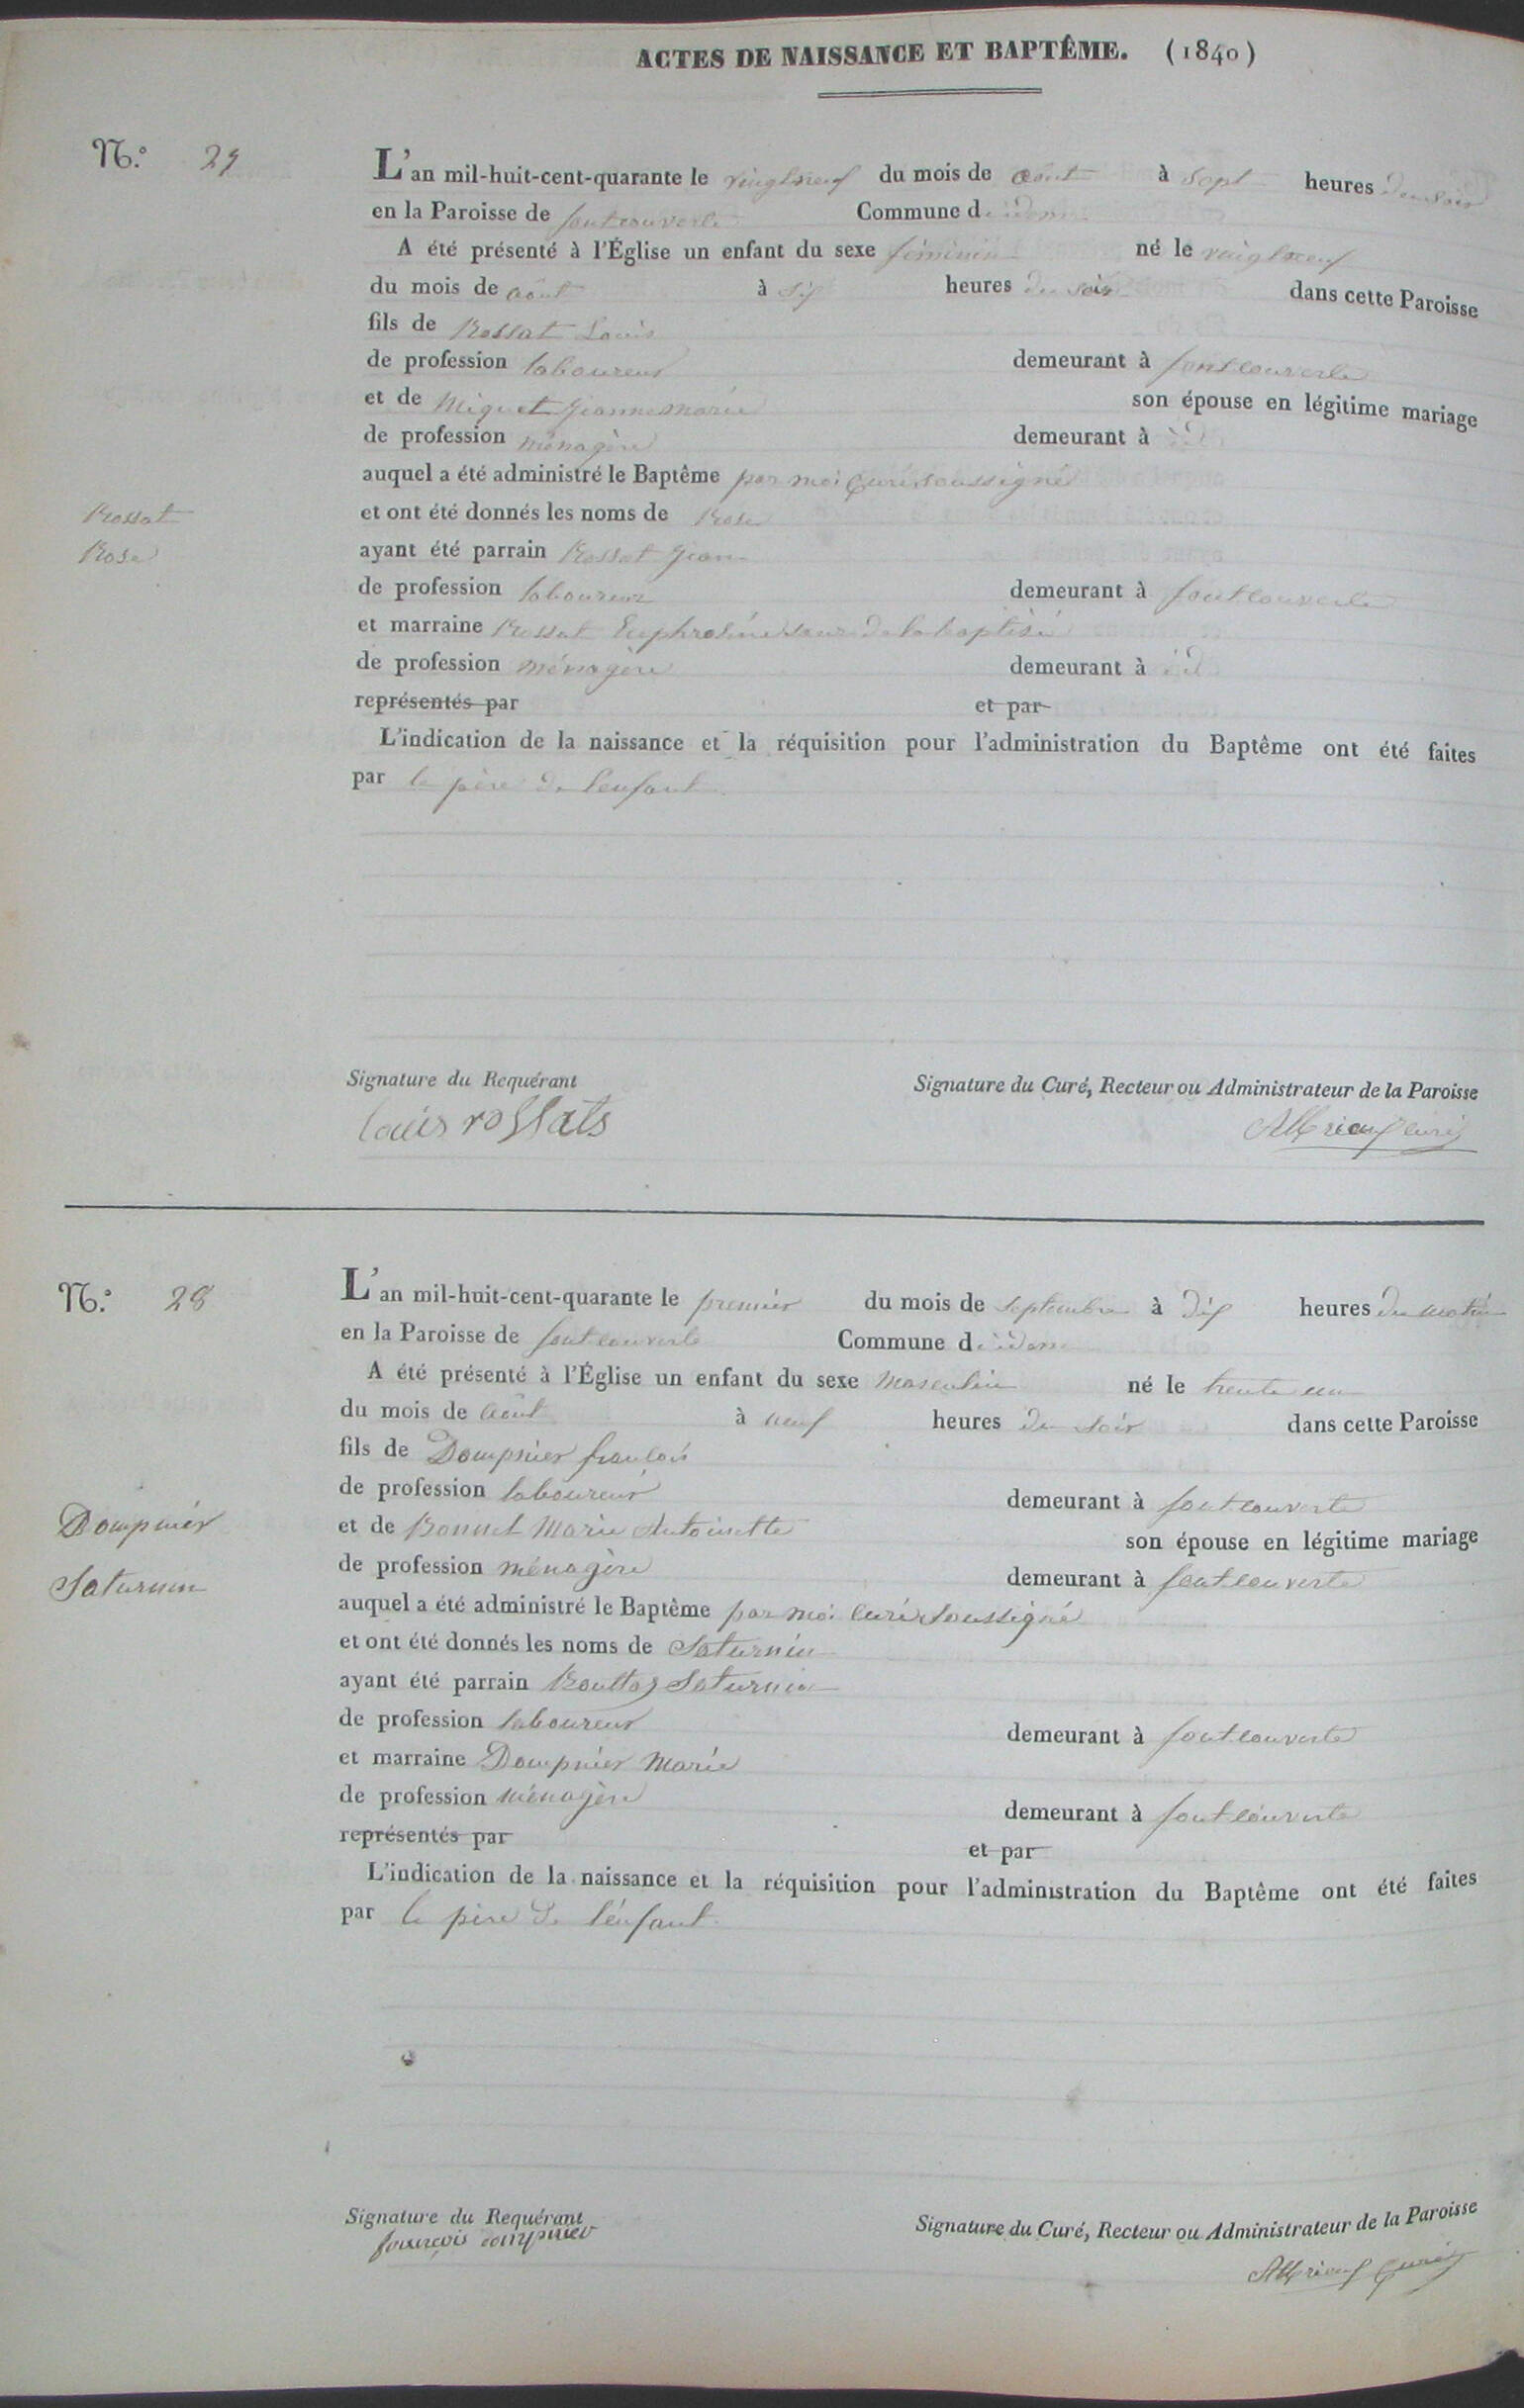 ACTES DE NAISSANCE ET BAPTÊME. (1840)
N.º 29
L'an mil-huit-cent-quarante le vingtneuf du mois de août à sept heures du soir
en la Paroisse de fontcouverte Commune d idem
A été présenté à l'Église un enfant du sexe féminin né le vingtneuf
du mois de août à six heures du soir dans cette Paroisse
fils de Rossat Louis
de profession laboureur demeurant à fontcouverte
et de Miquet Jeanne marie son épouse en légitime mariage
de profession ménagère demeurant à id
auquel a été administré le Baptême par moi Curé soussigné
Rossat
et ont été donnés les noms de Rose
Rose
ayant été parrain Rossat Jean
de profession laboureur demeurant à fontcouverte
et marraine Rossat Euphrosine soeur de la baptisée
de profession ménagère demeurant à id
représentés par et par
L'indication de la naissance et la réquisition pour l'administration du Baptême ont été faites
par le père de l'enfant
Signature du Requérant Signature du Curé, Recteur ou Administrateur de la Paroisse
louis rossats curé
N.º 28
L'an mil-huit-cent-quarante le premier du mois de septembre à dix heures du matin
en la Paroisse de fontcouverte Commune d idem
A été présenté à l'Église un enfant du sexe masculin né le trente un
du mois de août à neuf heures du soir dans cette Paroisse
fils de Dompnier francois
de profession laboureur demeurant à fontcouverte
Dompnier
et de Bonnet Marie Antoinette son épouse en légitime mariage
de profession ménagère demeurant à fontcouverte
Saturnin
auquel a été administré le Baptême par moi Curé soussigné
et ont été donnés les noms de Saturnin
ayant été parrain Bouttaz Saturnin
de profession laboureur demeurant à fontcouverte
et marraine Dompnier Marie
de profession ménagère demeurant à fontcouverte
représentés par et par
L'indication de la naissance et la réquisition pour l'administration du Baptême ont été faites
par le père de l'enfant
Signature du Requérant Signature du Curé, Recteur ou Administrateur de la Paroisse
francois dompnier Curé